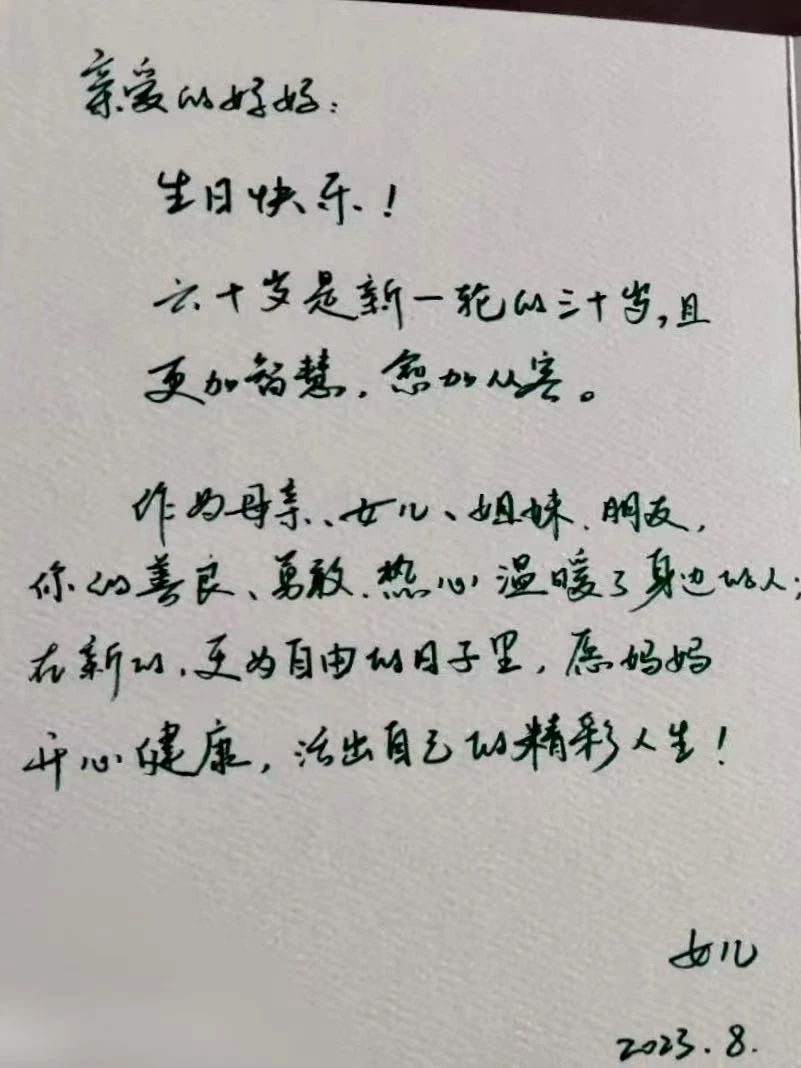 亲爱的好好：
生日快乐！
六十岁是新一轮的三十岁，且
更加智慧，愈加从容。
作为母亲、女儿、姐妹、朋友，
你的善良、勇敢、热心温暖了身边的人；
在新的、更为自由的日子里，愿妈妈
开心健康，活出自己的精彩人生！
女儿
2023.8.